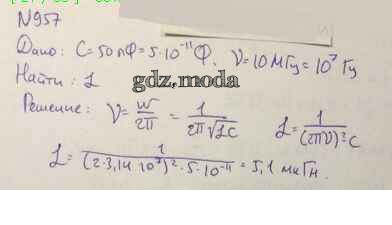 N957
Дано: C = 50 пФ = 5·10⁻¹¹ Ф. ν = 10 МГц = 10⁷ Гц
Найти: L
gdz.moda
Решение: ν = w/2π = 1/(2π√LC) L = 1/((2πν)²C
L = 1/((2·3,14 10⁷)²·5·10⁻¹¹ = 5,1 мкГн.